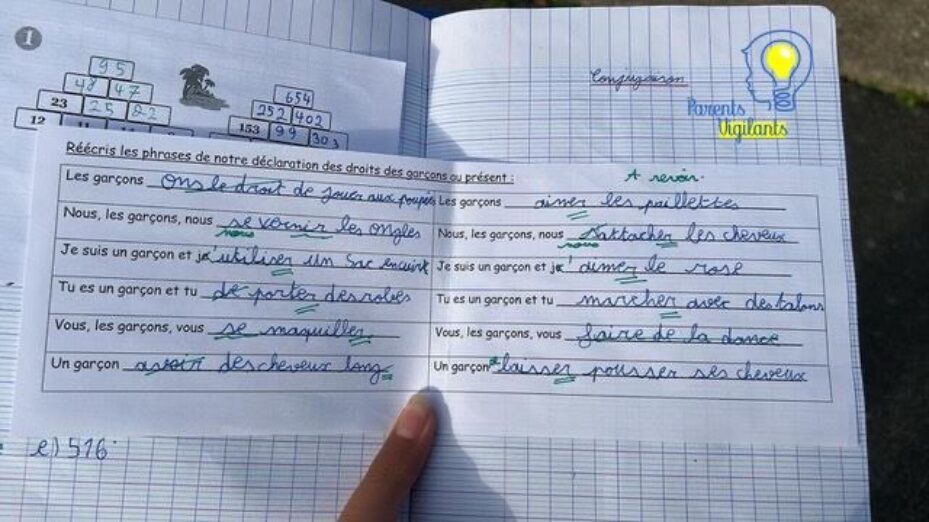 1
95
48 47
23 25 22
12
654
252 402
153 99 303
Conjugaison
Parents
Vigilants
Réécris les phrases de notre déclaration des droits des garçons au présent :
A revoir.
Les garçons ons le droit de jouer aux poupées
Les garçons aimer les paillettes
Nous, les garçons, nous se vernir les ongles
nous
Nous, les garçons, nous s'attacher les cheveux
nous
Je suis un garçon et j' utiliser un sac
Je suis un garçon et j' aimer le rose
Tu es un garçon et tu de porter des robes
Tu es un garçon et tu marcher avec des talons
Vous, les garçons, vous se maquiller
Vous, les garçons, vous faire de la dance
Un garçon avoir des cheveux long
Un garçon laisser pousser ses cheveux
e) 516